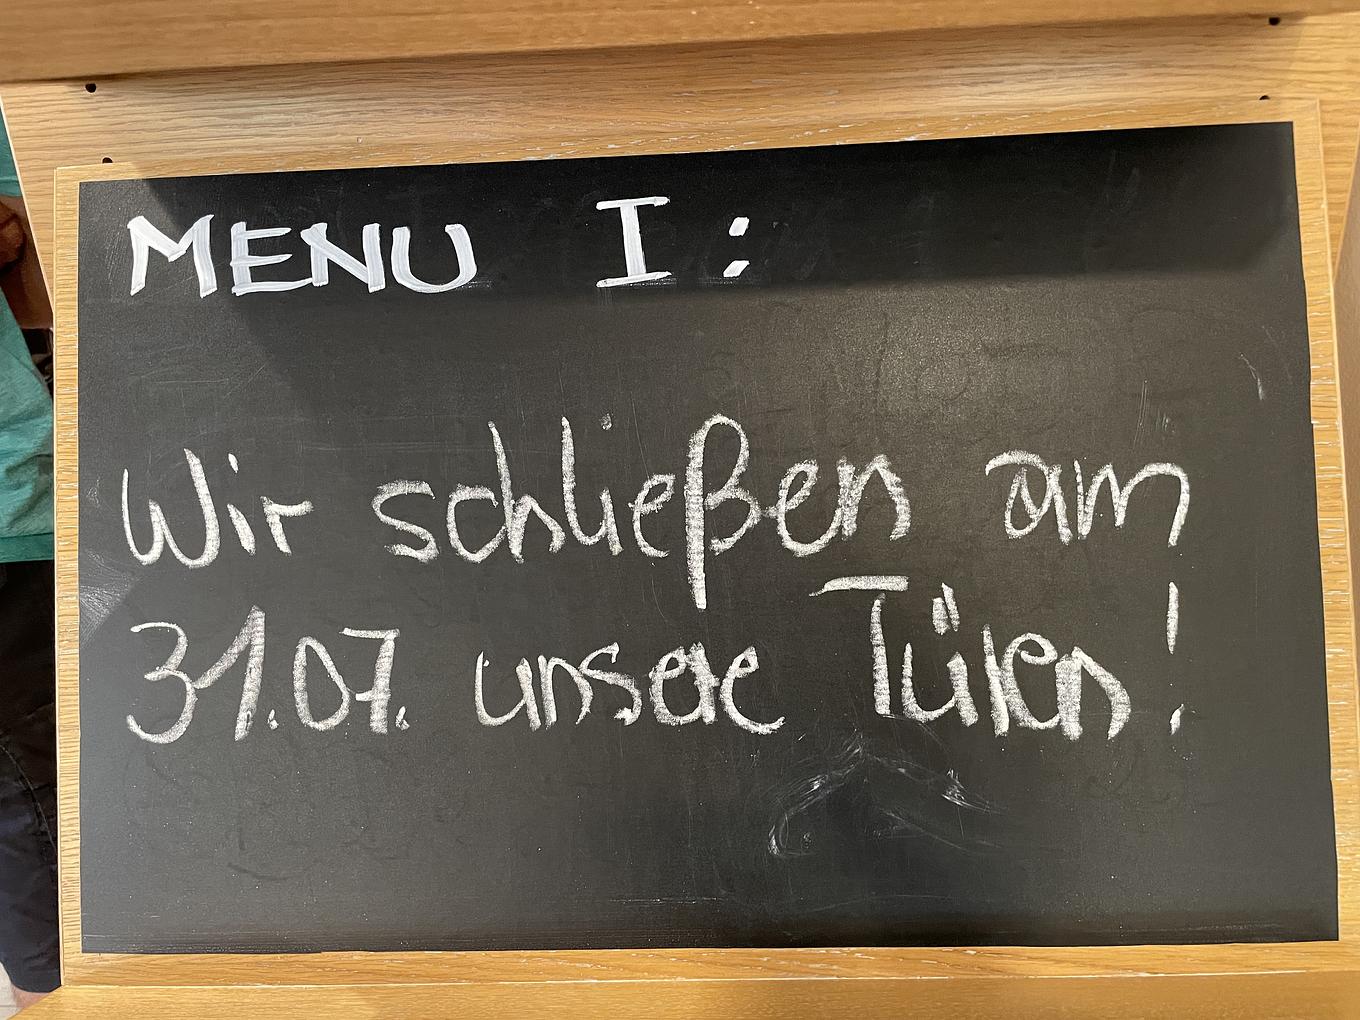 MENU I:
Wir schließen am
31.07. unsere Türen!